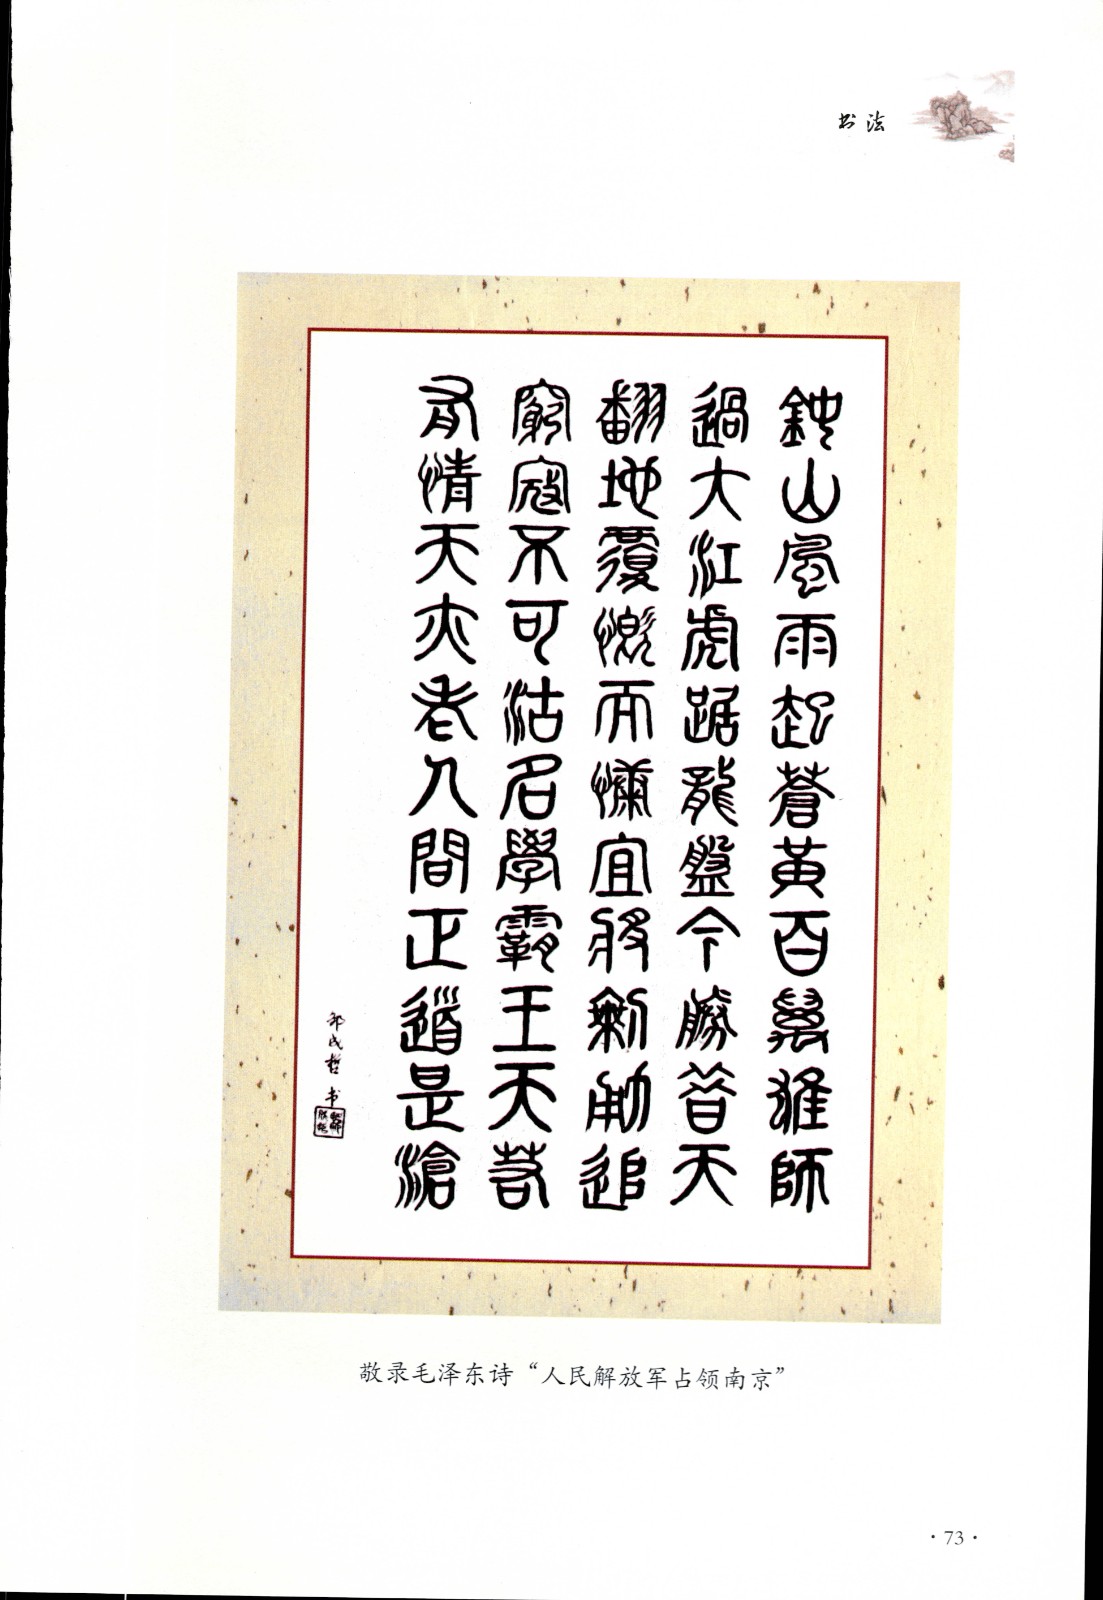 书法
山風雨起蒼黃百萬雄師
過大江虎踞龍盤今勝昔天
翻地覆慨而慷宜將剩勇追
窮寇不可沽名學霸王天若
有情天亦老人間正道是滄
成哲书
敬录毛泽东诗“人民解放军占领南京”
·73·